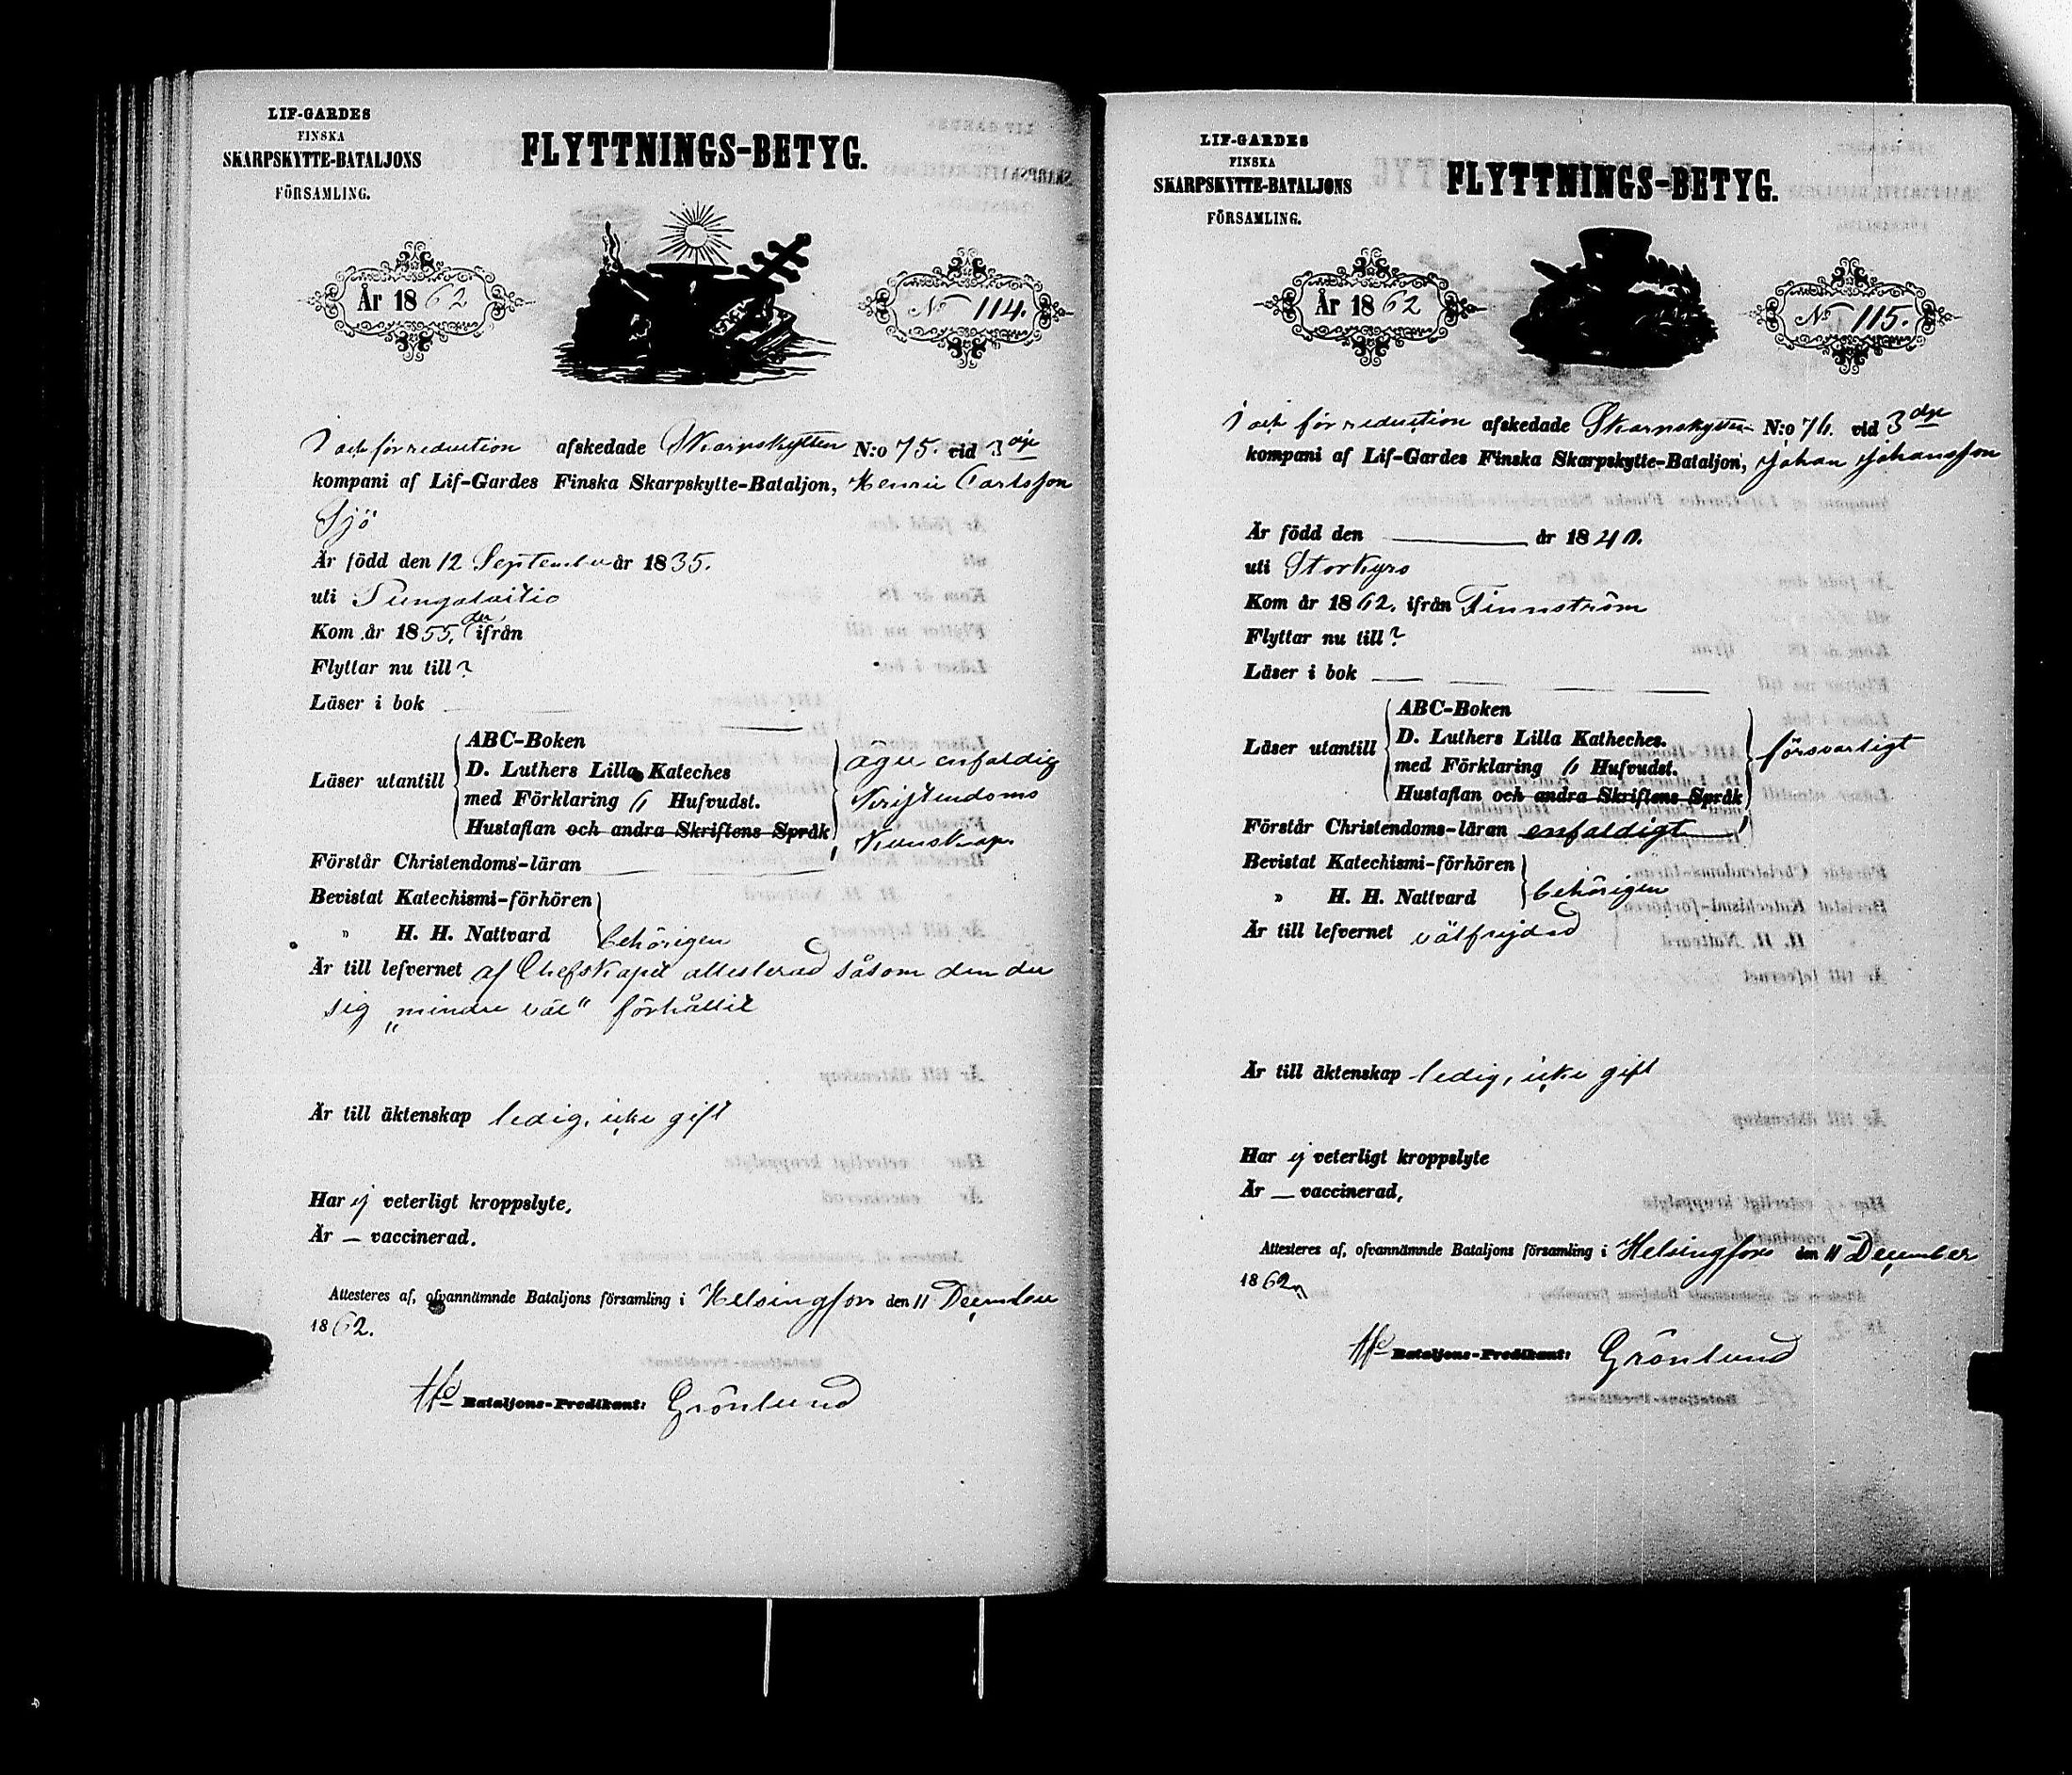 LIF-GARDES
FINSKA
SKARPSKYTTE-BATALJONS
FÖRSAMLING.
FLYTTNINGS-BETYG.
År 1862
No 114.
I och för reduction afskedade Skarpskytten N:o 75. vid 3dje
kompani af Lif-Gardes Finska Skarpskytte-Bataljon, Henric Carlsson
Sjö
Är född den 12 September år 1835.
uti Pungalaitio
Kom år 1855. der ifrån
Flyttar nu till?
Läser i bok
ABC-Boken
D. Luthers Lilla Kateches
Läser utantill
med Förklaring 6 Hufvudst.
Hustaflan och andra Skriftens Språk
äger enfaldig
Kristendoms
Kunskap.
Förstår Christendoms-läran
Bevistat Katechismi-förhören
" H. H. Nattvard behörigen
Är till lefvernet af Chefskapet attesterad såsom den der
sig „mindre väl" förhållit
Är till äktenskap ledig, icke gift
Har ej veterligt kroppslyte.
Är — vaccinerad.
Attesteres af, ofvannämnde Bataljons församling i Helsingfors den 11 December
1862.
Bataljons-Predikant: Grönlund
LIF-GARDES
FINSKA
SKARPSKYTTE-BATALJONS
FÖRSAMLING.
FLYTTNINGS-BETYG.
År 1862
No 115.
I och för reduction afskedade Skarpskytten N:o 76. vid 3dje
kompani af Lif-Gardes Finska Skarpskytte-Bataljon, Johan Johansson
Är född den ——— år 1840.
uti Storkyro
Kom år 1862. ifrån Finnström
Flyttar nu till?
Läser i bok
ABC-Boken
D. Luthers Lilla Katheches.
Läser utantill
med Förklaring 6 Hufvudst.
Hustaflan och andra Skriftens Språk
försvarligt
Förstår Christendoms-läran enfaldigt
Bevistat Katechismi-förhören
" H. H. Nattvard behörigen
Är till lefvernet välfrejdad
Är till äktenskap ledig, icke gift
Har ej veterligt kroppslyte
Är — vaccinerad,
Attesteres af, ofvannämnde Bataljons församling i Helsingfors den 11 December
1862
Bataljons-Predikant: Grönlund